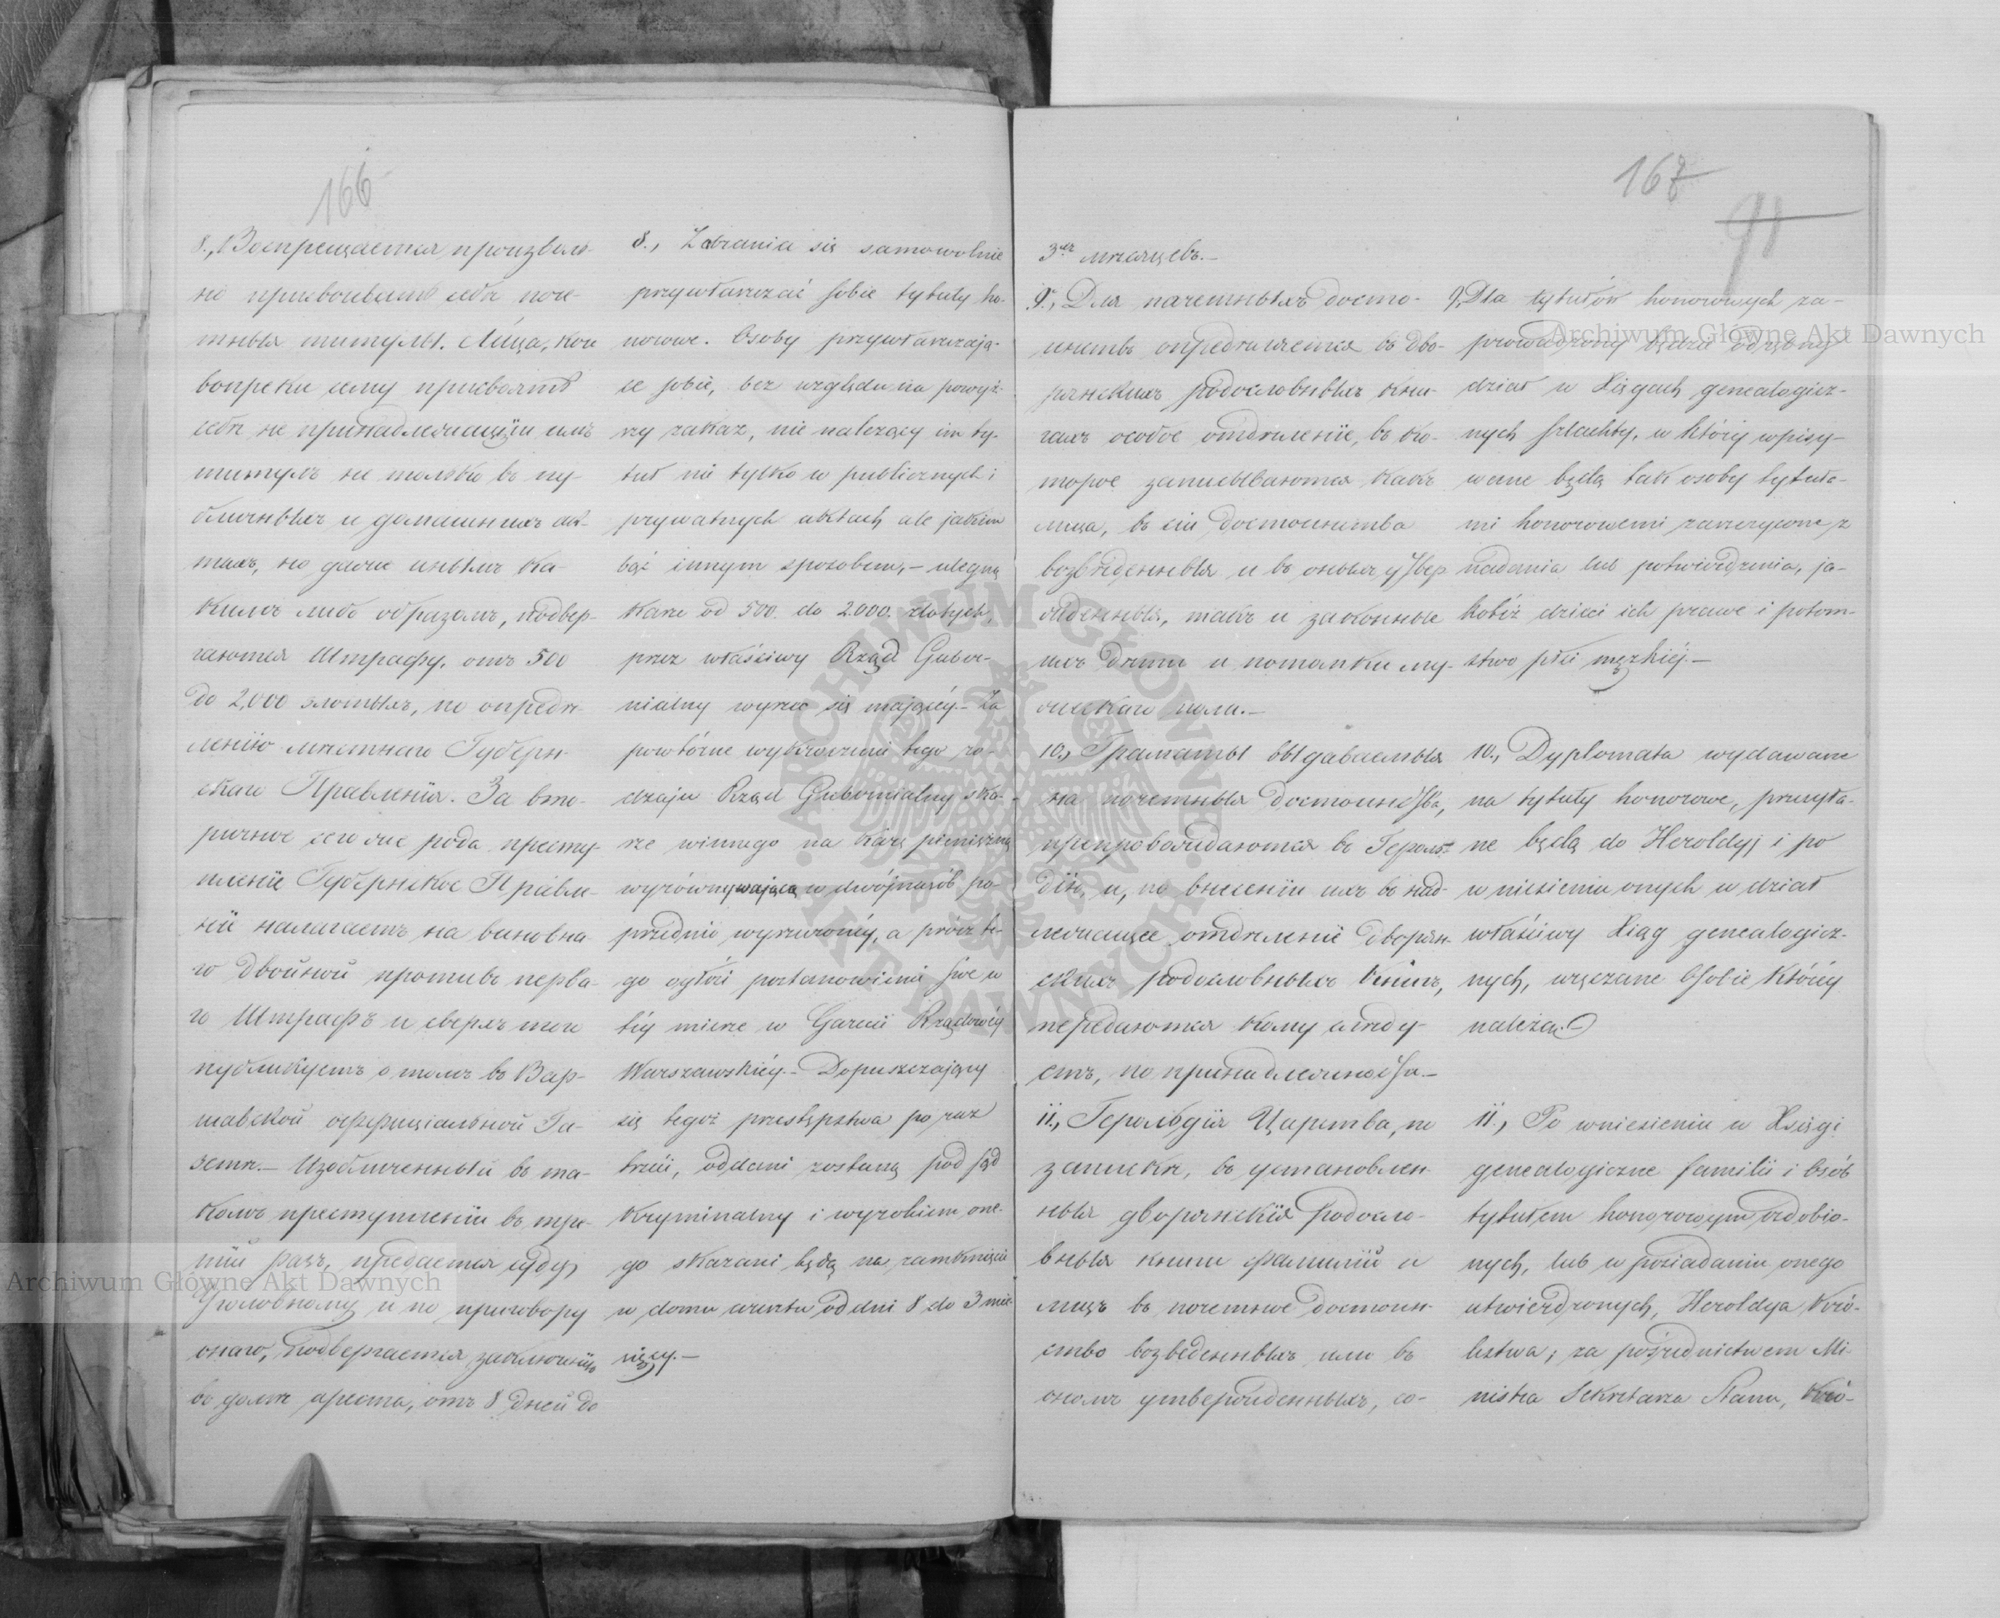 166
8., Воспрещается произволь-
но присвоивать себѣ поче-
тныя титулы. Лица, кои
вопреки сему присвоятъ
себѣ не принадлежащій имъ
титулъ не только въ пу-
бличныхъ и домашнихъ ак-
тахъ, но даже инымъ ка-
кимъ либо образомъ, подвер-
гаются Штрафу, отъ 500
до 2,000 злотыхъ, по опредѣ-
ленію мѣстнаго Губерн-
скаго Правленія. За вто-
ричное сего же рода престу-
пленіе Губернское Правле-
ніе налагаетъ на виновна-
го двойной противъ перва-
го Штрафъ и сверхъ того
публикуетъ о томъ въ Вар-
шавской оффиціальной Га-
зетѣ.— Изобличенный въ та-
комъ преступленіи въ тре-
тій разъ, предается суду
Уголовному и по приговору
онаго, подвергается заключенію
въ домѣ ареста, отъ 8 дней до
8., Zabrania się samowolnie
przywłaszczać sobie tytuły ho-
norowe. Osoby przywłaszczają-
ce sobie, bez względu na powyż-
szy zakaz, nie należący im ty-
tuł nie tylko w publicznych i
prywatnych aktach ale jakim
bąź innym sposobem,— ulegną
karze od 500. do 2.000. złotych,
przez właściwy Rząd Guber-
nialny wyrzec się mającéj.— Za
powtórne wykroczenie tego ro-
dzaju Rząd Gubernialny ska-
że winnego na karę pieniężną
wyrównywającą w dwójnasób po-
przednio wyrzeczonéj, a prócz te-
go ogłosi postanowienie swe w
téj mierze w Gazecie Rządowéj
Warszawskiéj.— Dopuszczający
się tegoż przestępstwa po raz
trzeci, oddani zostaną pod sąd
kryminalny i wyrokiem one-
go skazani będą na zamknięcie
w domu aresztu od dni 8 do 3 mie-
sięcy.—
167
91
3хъ мѣсяцевъ.—
9., Для почетныхъ досто-
инствъ опредѣляется въ дво-
рянскихъ родословныхъ кни-
гахъ особое отдѣленіе, въ ко-
торое записываются какъ
лица, въ сіи достоинства
возведенныя и въ оныхъ утвер-
жденныя, такъ и законные
ихъ дѣти и потомки му-
жескаго пола.—
10., Граматы выдаваемыя
на почетныя достоинства,
препровождаются въ Героль-
дію, и, по внесеніи ихъ въ над-
лежащее отдѣленіе дворян-
скихъ родословныхъ книгъ,
передаются кому слѣду-
етъ, по принадлежности.—
11., Герольдія Царства, по
запискѣ, въ установлен-
ныя дворянскія родосло-
вныя книги фамилій и
лицъ въ почетное достоин-
ство возведенныхъ или въ
ономъ утвержденныхъ, со-
9., Dla tytułów honorowych za-
prowadzony będzie oddzielny
dział w Xięgach genealogicz-
nych szlachty, w który wpisy-
wane będą tak osoby tytuła-
mi honorowemi zaszczycone z
nadania lub potwierdzenia, ja-
kotéż dzieci ich prawe i potom-
stwo płci męzkiéj.—
10., Dyplomata wydawane
na tytuły honorowe, przesyła-
ne będą do Heroldyi i po
wniesieniu onych w dział
właściwy Xiąg genealogicz-
nych, wręczane Osobie któréj
należą.
11., Po wniesieniu w Xsięgi
genealogiczne familii i osób
tytułem honorowym ozdobio-
nych, lub w posiadaniu onego
utwierdzonych, Heroldya Kró-
lestwa, za pośrednictwem Mi-
nistra Sekretarza Stanu, Kró-
Archiwum Główne Akt Dawnych
Archiwum Główne Akt Dawnych
ARCHIWUM GŁÓWNE
AKT DAWNYCH